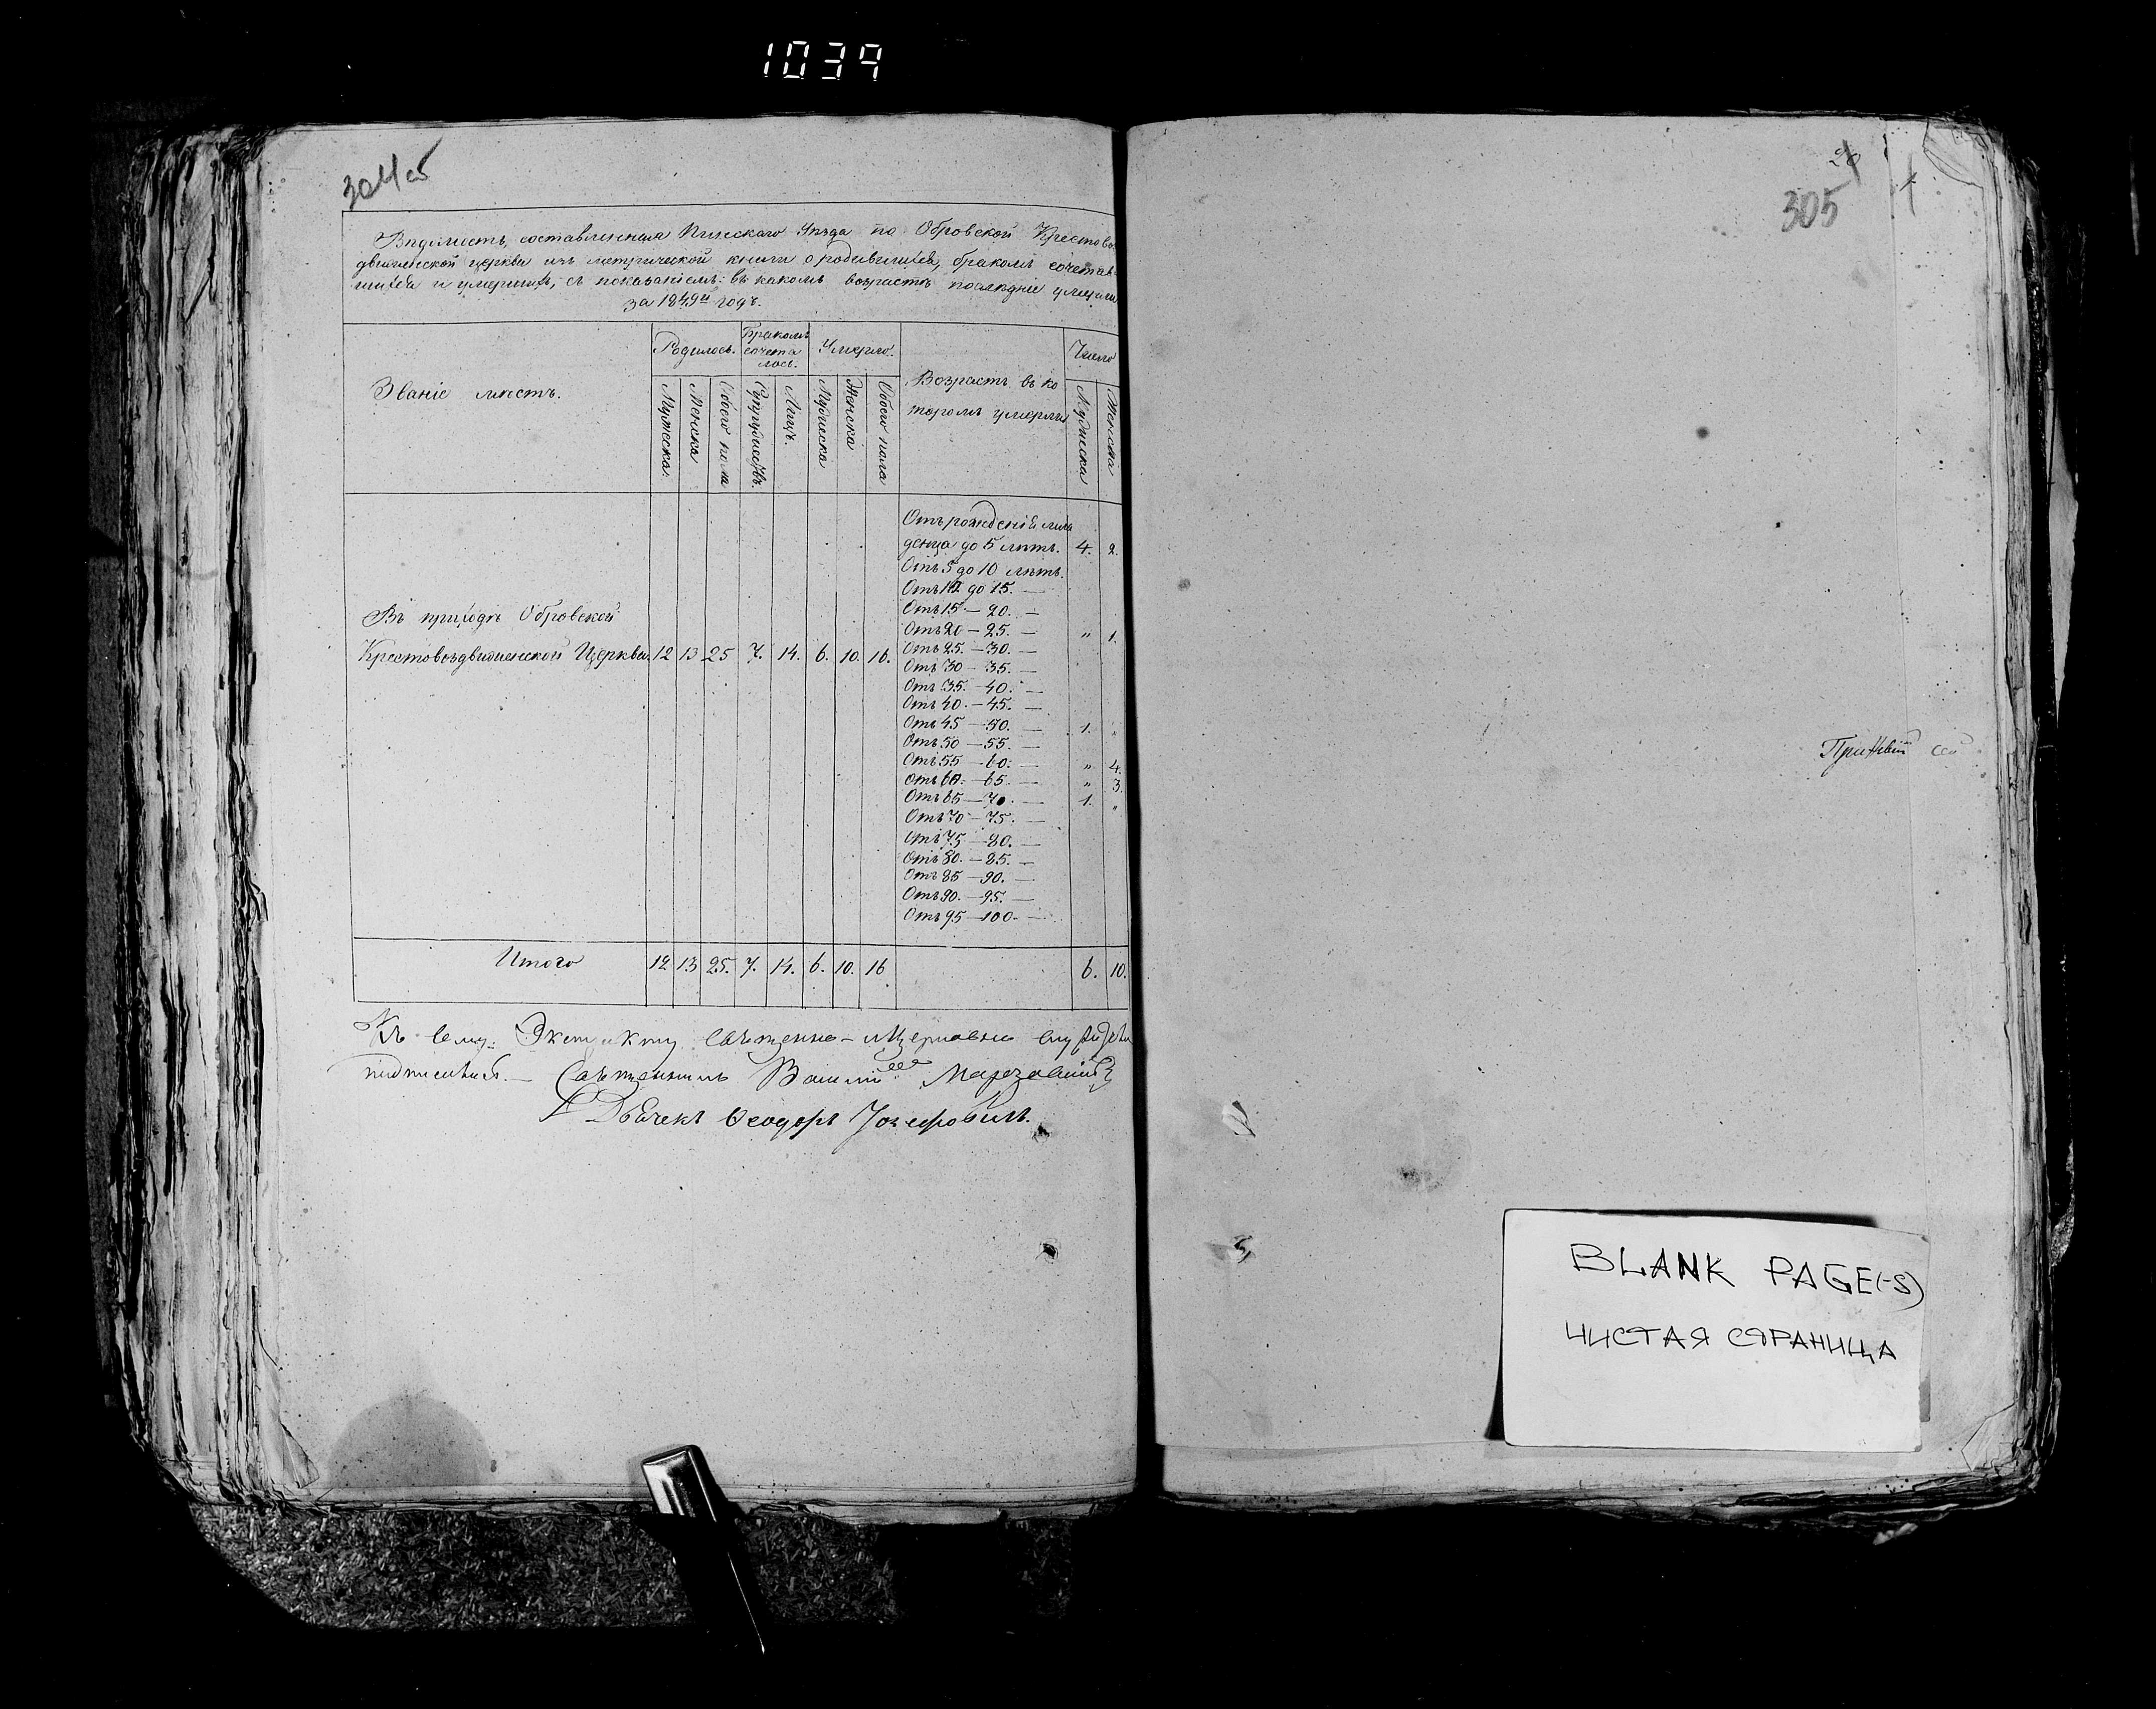 1039
304об
Вѣдомость, составленная Пинскаго Уѣзда по Обровской Крестовоз
движенской церкви изъ метрической книги о родившихся, бракомъ сочетав
шихся и умершихъ, съ показаніемъ: въ какомъ возрастѣ послѣдніе умерли
за 1849й годъ.
Званіе мѣстъ. Родилось. Бракомъ сочета лось. Умерло. Возрастъ въ ко Число
торомъ умерли
Мужеска. Женска Обоего пола Супружествъ. Лицъ. Мужеска Женска Обоего пола Мужеска Женска
Отъ рожденія мла
денца до 5 лѣтъ. 4. 2.
Отъ 5 до 10 лѣтъ.
Отъ 10 до 15. —
Отъ 15 — 20. —
Отъ 20 — 25. — „ 1.
Въ приходѣ Обровской
Крестовоздвиженской Церкви. 12 13 25 7. 14. 6. 10. 16. Отъ 25. — 30. —
Отъ 30 — 35. —
Отъ 35. — 40. —
Отъ 40. — 45. —
Отъ 45 — 50. — 1. „
Отъ 50 — 55. —
Отъ 55 — 60. — „ 4.
Отъ 60. — 65. — „ 3.
Отъ 65 — 70. — 1. „
Отъ 70 — 75. —
Отъ 75 — 80. —
Отъ 80. — 85. —
Отъ 85 — 90. —
Отъ 90. — 95. —
Отъ 95 — 100. —
Итого 12 13 25. 7. 14. 6. 10. 16 6. 10.
Къ сему Экстракту Священно-и Церковно служители
подписались. — Священникъ Василій
Дьячекъ Ѳеодоръ Іозефовичъ.
305
BLANK PAGE(-S)
ЧИСТАЯ СТРАНИЦА